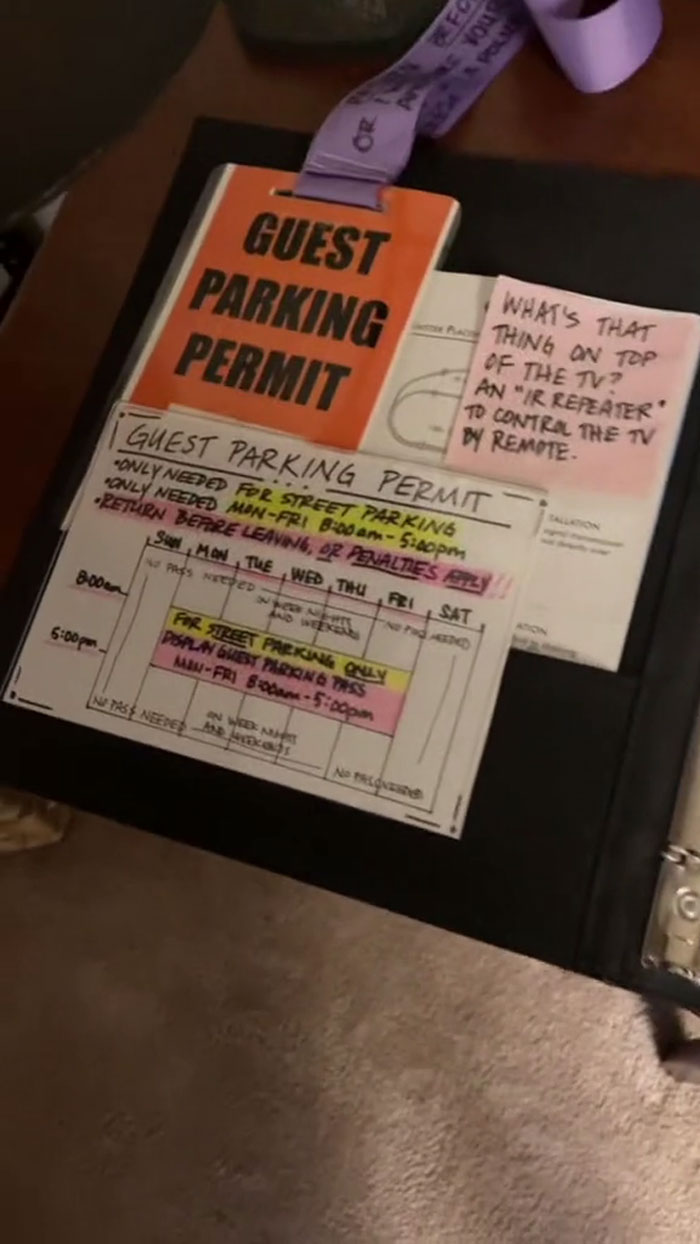 OR
GUEST
PARKING
PERMIT
WHAT'S THAT
THING ON TOP
OF THE TV?
AN "IR REPEATER"
TO CONTROL THE TV
BY REMOTE.
GUEST PARKING PERMIT
•ONLY NEEDED FOR STREET PARKING
•ONLY NEEDED MON-FRI 8:00am-5:00pm
•RETURN BEFORE LEAVING, OR PENALTIES APPLY!!
SUN MON TUE WED THU FRI SAT
8:00am
NO PASS NEEDED
ON WEEK NIGHTS
AND WEEKENDS
NO PASS NEEDED
5:00pm
FOR STREET PARKING ONLY
DISPLAY GUEST PARKING PASS
MON-FRI 8:00am-5:00pm
NO PASS NEEDED
ON WEEK NIGHTS
AND WEEKENDS
NO PASS NEEDED